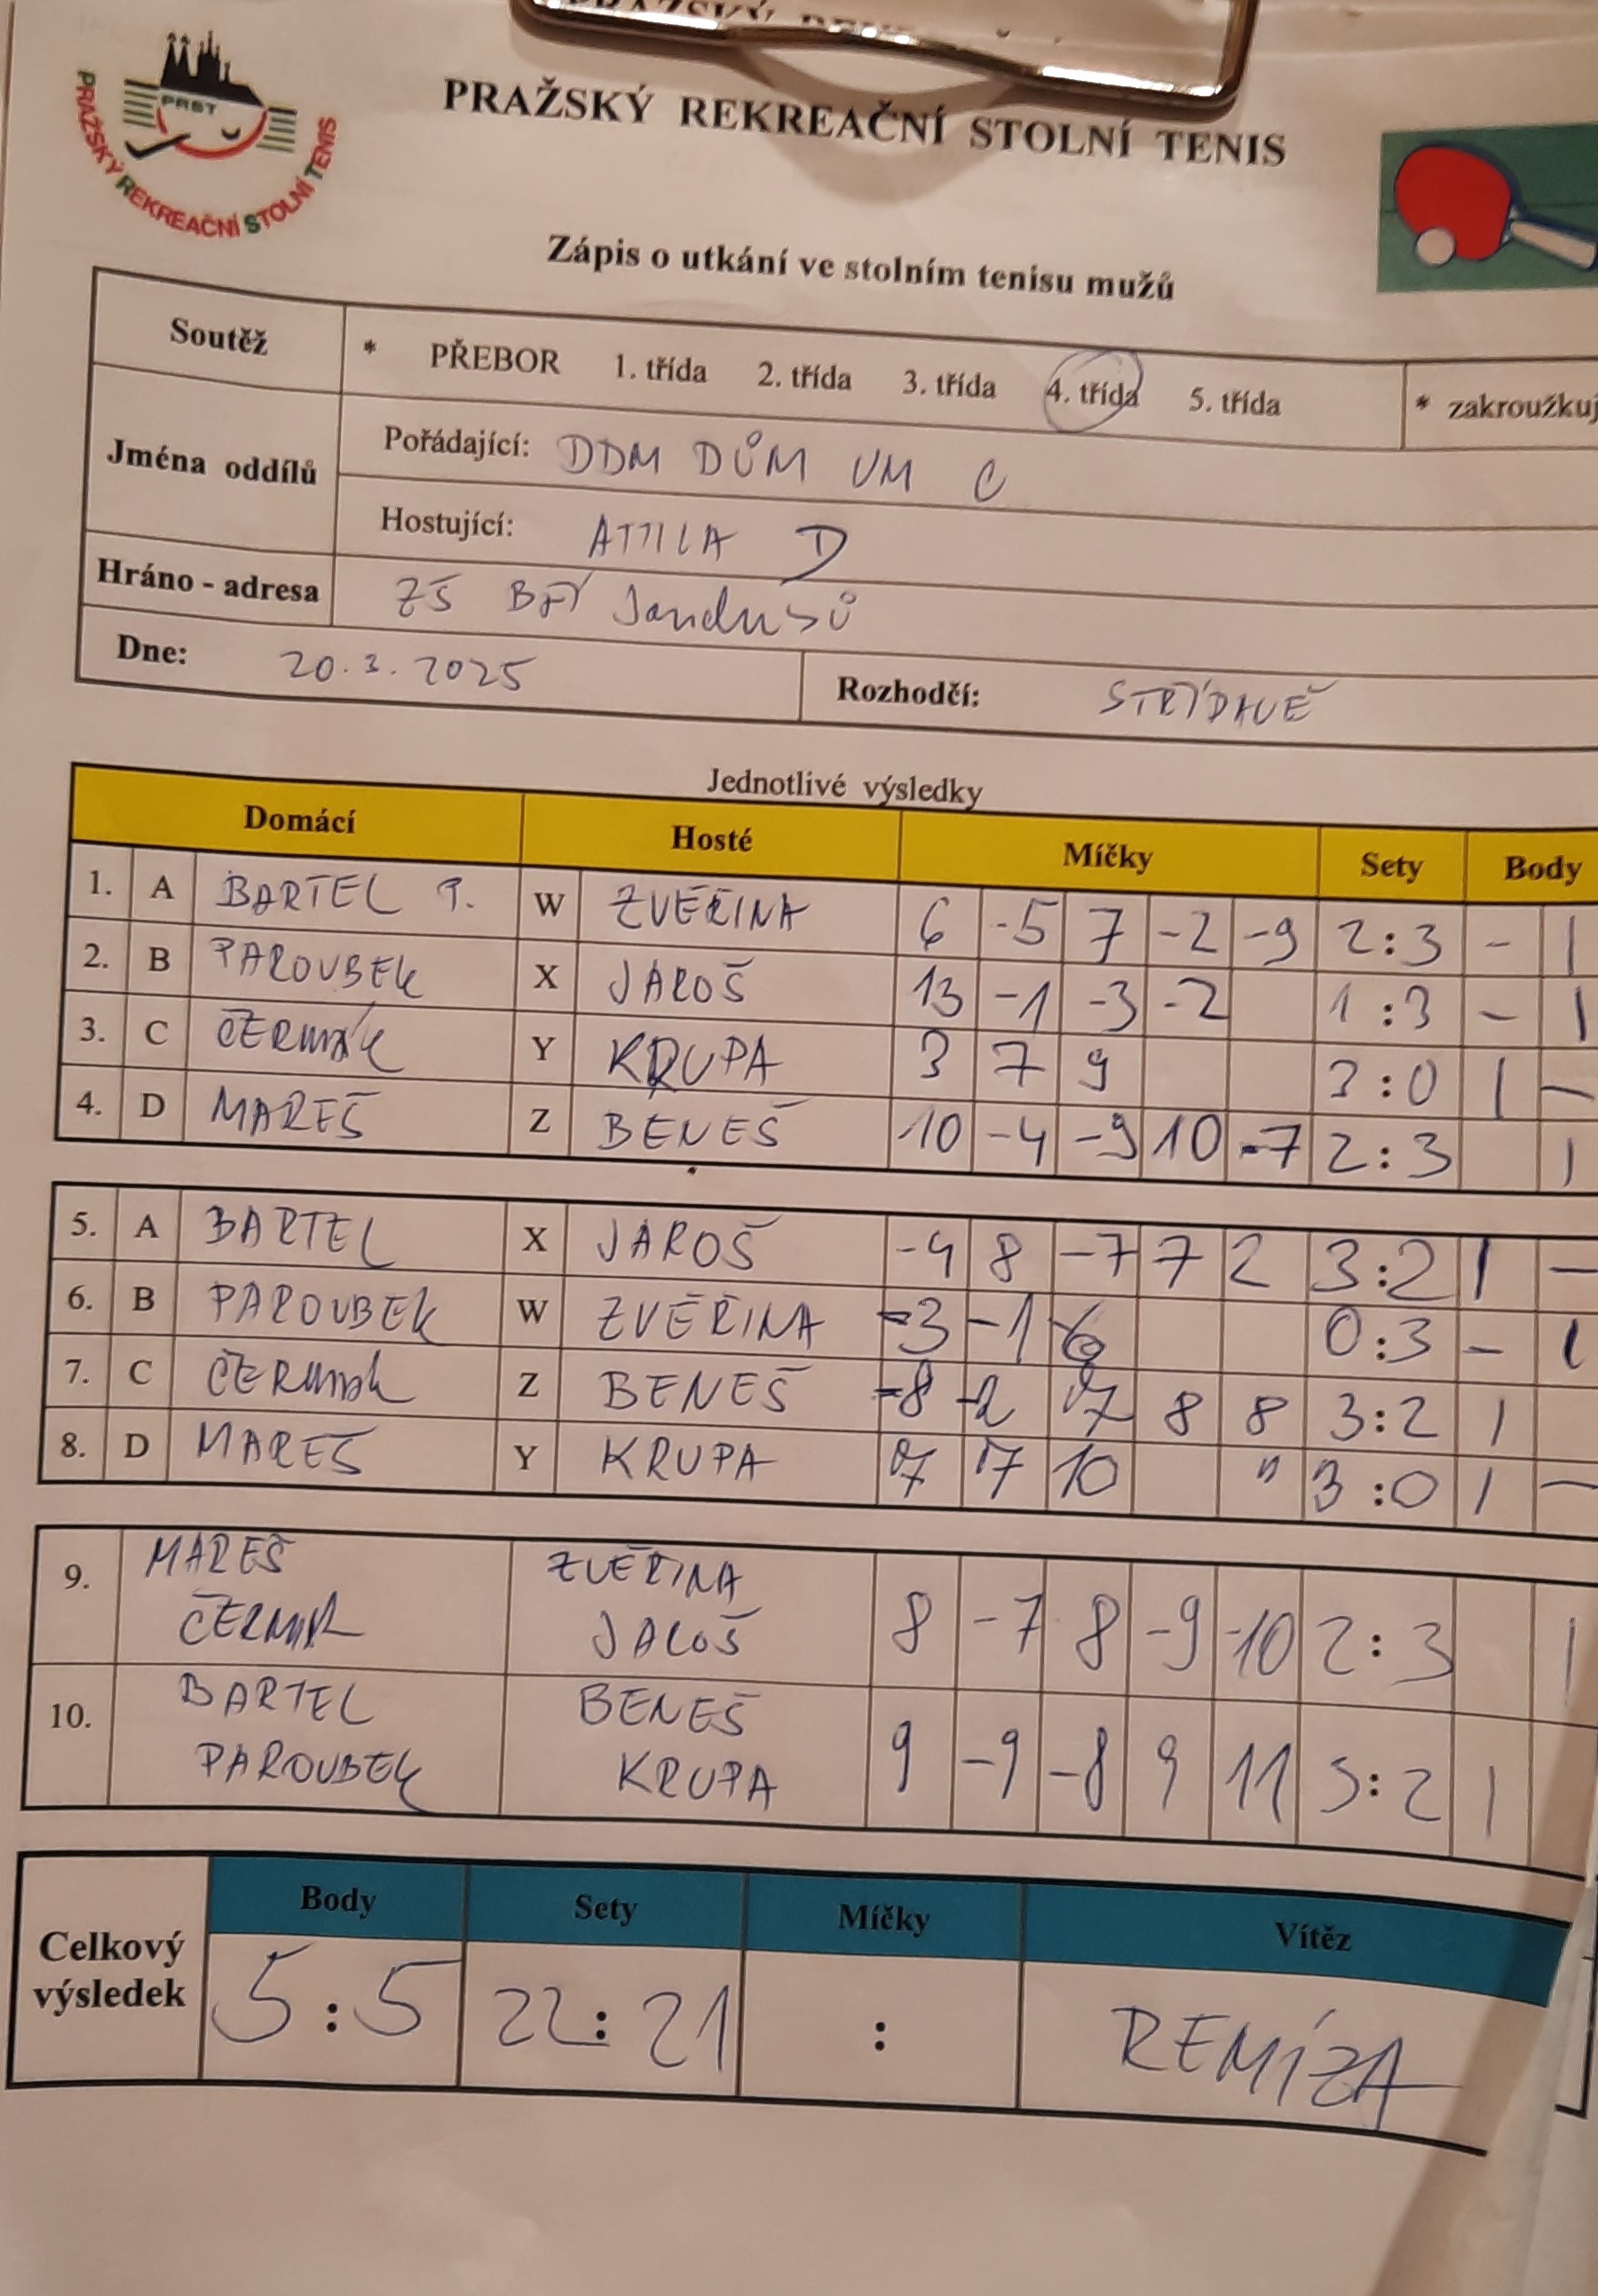 PRAŽSKÝ REKREAČNÍ STOLNÍ TENIS
PRST
PRAŽSKÝ REKREAČNÍ STOLNÍ TENIS
Zápis o utkání ve stolním tenisu mužů
Soutěž * PŘEBOR 1. třída 2. třída 3. třída 4. třída 5. třída * zakroužkuj
Jména oddílů Pořádající: DDM DŮM UM C
Hostující: ATTILA D
Hráno - adresa ZŠ BŘÍ Jandusů
Dne: 20.3.2025 Rozhodčí: STŘÍDAVĚ
Jednotlivé výsledky
Domácí Hosté Míčky Sety Body
1. A BARTEL P. W ZVĚŘINA 6 -5 7 -2 -9 2:3 - 1
2. B PAROUBEK X JAROŠ 13 -1 -3 -2 1:3 - 1
3. C ČERMÁK Y KRUPA 3 7 9 3:0 1 -
4. D MAREŠ Z BENEŠ 10 -4 -9 10 -7 2:3 1
5. A BARTEL X JAROŠ -4 8 -7 7 2 3:2 1 -
6. B PAROUBEK W ZVĚŘINA -3 -1 -6 0:3 - 1
7. C ČERMÁK Z BENEŠ -8 -2 7 8 8 3:2 1
8. D MAREŠ Y KRUPA 7 17 10 3:0 1 -
9. MAREŠ ZVĚŘINA
ČERMÁK JAROŠ 8 -7 8 -9 -10 2:3 1
10. BARTEL BENEŠ
PAROUBEK KRUPA 9 -9 -8 9 11 3:2 1
Body Sety Míčky Vítěz
Celkový výsledek 5:5 22:21 : REMÍZA